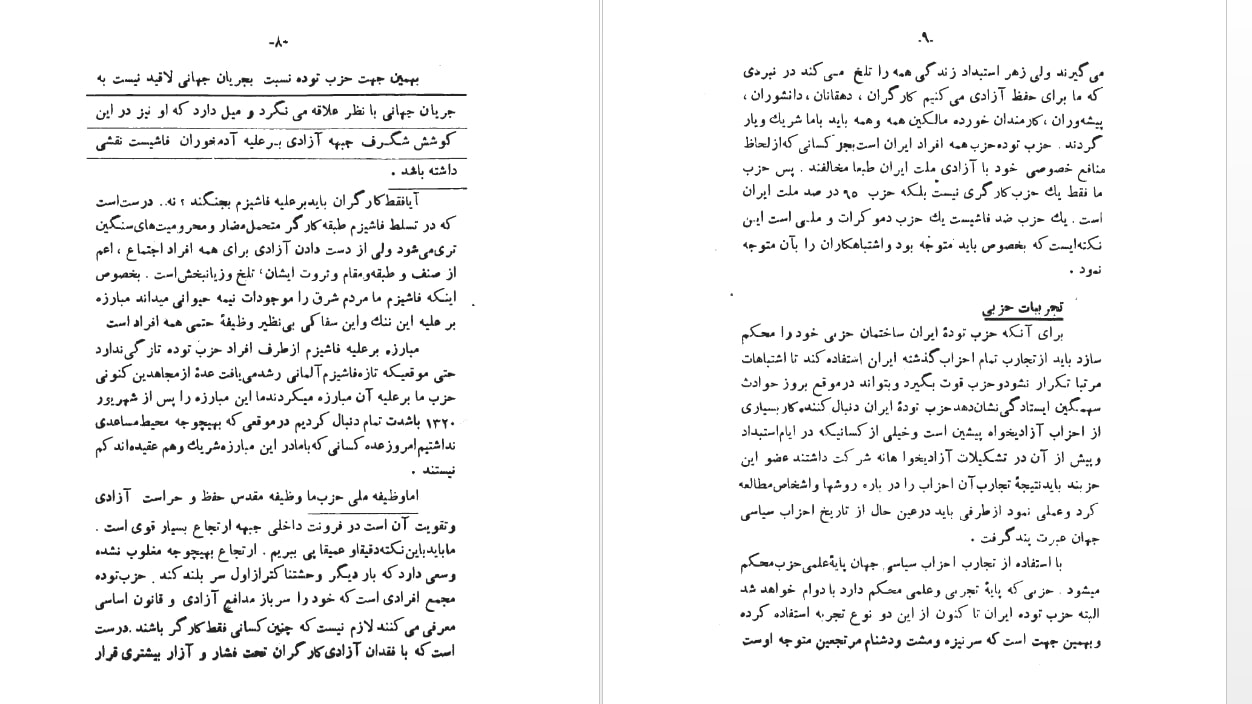 -۸۰
بهمین جهت حزب توده نسبت بجریان جهانی لاقید نیست به
جریان جهانی با نظر علاقه می نگرد و میل دارد که او نیز در این
کوشش شگرف جبهه آزادی بر علیه آدمخوران فاشیست نقشی
داشته باشد .
آیا فقط کارگران باید بر علیه فاشیزم بجنگند ؟ نه.. درست است
که در تسلط فاشیزم طبقه کارگر متحمل مضار و محرومیت‌های سنگین
تری می‌شود ولی از دست دادن آزادی برای همه افراد اجتماع ، اعم
از صنف و طبقه و مقام و ثروت ایشان، تلخ و زیانبخش است . بخصوص
اینکه فاشیزم ما مردم شرق را موجودات نیمه حیوانی میداند مبارزه
بر علیه این ننگ و این سفاکی بی‌نظیر وظیفۀ حتمی همه افراد است
مبارزه بر علیه فاشیزم از طرف افراد حزب توده تازگی ندارد
حتی موقعیکه تازه فاشیزم آلمانی رشد می‌یافت عدۀ از مجاهدین کنونی
حزب ما بر علیه آن مبارزه میکردند ما این مبارزه را پس از شهریور
۱۳۲۰ باشدت تمام دنبال کردیم در موقعی که بهیچوجه محیط مساعدی
نداشتیم امروز عده کسانی که با ما در این مبارزه شریک و هم عقیده‌اند کم
نیستند .
اما وظیفه ملی حزب ما وظیفه مقدس حفظ و حراست آزادی
و تقویت آن است در فرونت داخلی جبهه ارتجاع بسیار قوی است .
ما باید باین نکته دقیقا و عمیقا پی ببریم . ارتجاع بهیچوجه مغلوب نشده
وسعی دارد که بار دیگر وحشتناکتر از اول سر بلند کند . حزب توده
مجمع افرادی است که خود را سرباز مدافع آزادی و قانون اساسی
معرفی می کنند لازم نیست که چنین کسانی فقط کارگر باشند . درست
است که با فقدان آزادی کارگران تحت فشار و آزار بیشتری قرار
-۹-
می گیرند ولی زهر استبداد زندگی همه را تلخ می کند در نبردی
که ما برای حفظ آزادی می‌کنیم کارگران ، دهقانان ، دانشوران ،
پیشه‌وران ، کارمندان خورده مالکین همه و همه باید با ما شریك و یار
گردند . حزب توده حزب همه افراد ایران است بجز کسانی که از لحاظ
منافع خصوصی خود با آزادی ملت ایران طبعا مخالفند . پس حزب
ما فقط یك حزب کارگری نیست بلکه حزب ۹۵ در صد ملت ایران
است . یك حزب ضد فاشیست یك حزب دموکرات و ملی است این
نکته‌ایست که بخصوص باید متوجه بود و اشتباهکاران را بآن متوجه
نمود .
تجربیات حزبی
برای آنکه حزب تودۀ ایران ساختمان حزبی خود را محکم
سازد باید از تجارب تمام احزاب گذشته ایران استفاده کند تا اشتباهات
مرتبا تکرار نشود و حزب قوت بگیرد و بتواند در موقع بروز حوادث
سهمگین ایستادگی نشان دهد حزب تودۀ ایران دنبال کننده کار بسیاری
از احزاب آزادیخواه پیشین است و خیلی از کسانیکه در ایام استبداد
و پیش از آن در تشکیلات آزادیخوا هانه شرکت داشتند عضو این
حزبند باید نتیجۀ تجارب آن احزاب را در باره روشها و اشخاص مطالعه
کرد و عملی نمود از طرفی باید در عین حال از تاریخ احزاب سیاسی
جهان عبرت پند گرفت .
با استفاده از تجارب احزاب سیاسی جهان پایۀ علمی حزب محکم
میشود . حزبی که پایۀ تجربی و علمی محکم دارد با دوام خواهد شد
البته حزب توده ایران تا کنون از این دو نوع تجربه استفاده کرده
و بهمین جهت است که سر نیزه و مشت و دشنام مرتجعین متوجه اوست